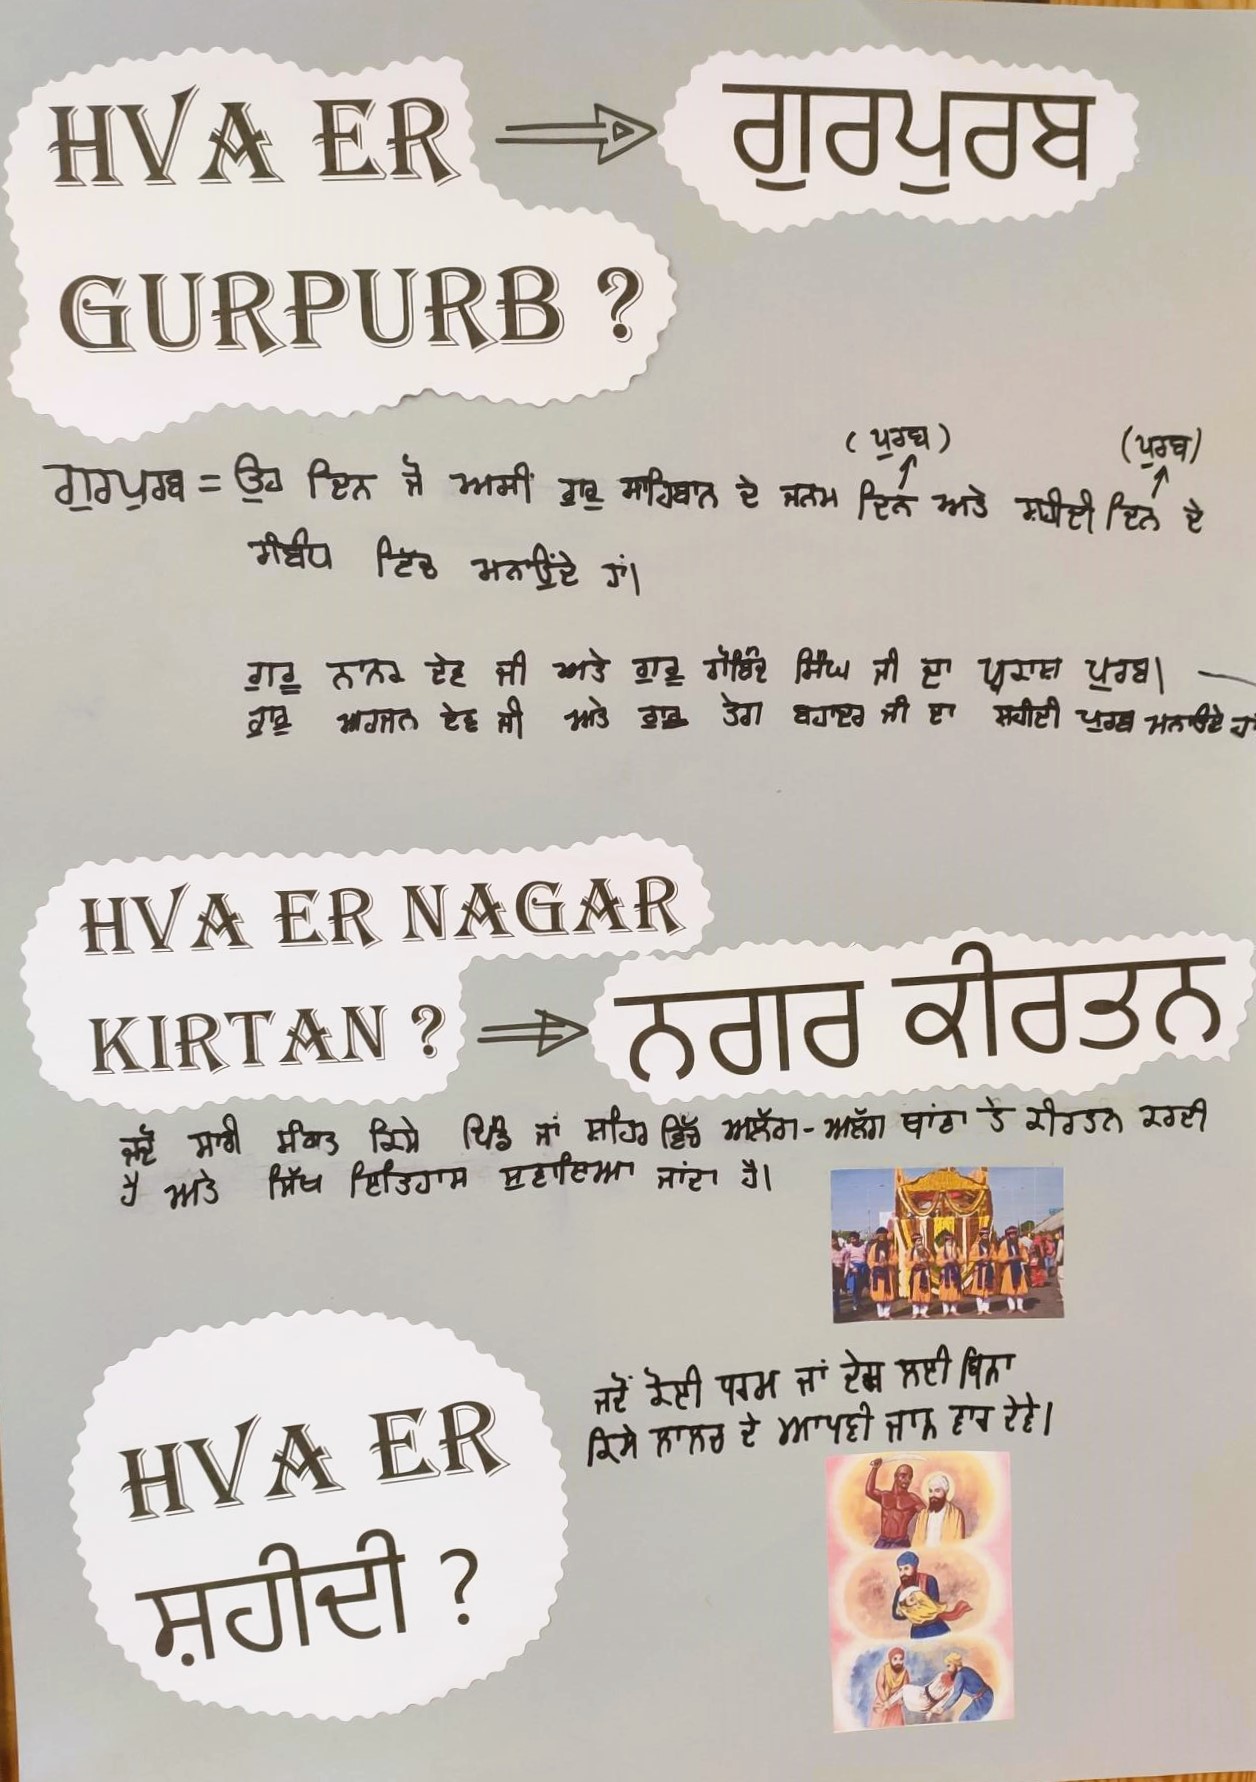 HVA ER
ਗੁਰਪੁਰਬ
GURPURB ?
(ਪੁਰਬ) (ਪੁਰਬ)
ਗੁਰਪੁਰਬ = ਉਹ ਦਿਨ ਜੋ ਅਸੀਂ ਗੁਰੂ ਸਾਹਿਬਾਨ ਦੇ ਜਨਮ ਦਿਨ ਅਤੇ ਸ਼ਹੀਦੀ ਦਿਨ ਦੇ
ਸੰਬੰਧ ਵਿੱਚ ਮਨਾਉਂਦੇ ਹਾਂ।
ਗੁਰੂ ਨਾਨਕ ਦੇਵ ਜੀ ਅਤੇ ਗੁਰੂ ਗੋਬਿੰਦ ਸਿੰਘ ਜੀ ਦਾ ਪ੍ਰਕਾਸ਼ ਪੁਰਬ।
ਗੁਰੂ ਅਰਜਨ ਦੇਵ ਜੀ ਅਤੇ ਗੁਰੂ ਤੇਗ ਬਹਾਦਰ ਜੀ ਦਾ ਸ਼ਹੀਦੀ ਪੁਰਬ ਮਨਾਉਂਦੇ
HVA ER NAGAR
KIRTAN ?
ਨਗਰ ਕੀਰਤਨ
ਜਦੋਂ ਸਾਰੀ ਸੰਗਤ ਕਿਸੇ ਪਿੰਡ ਜਾਂ ਸ਼ਹਿਰ ਵਿੱਚ ਅਲੱਗ-ਅਲੱਗ ਥਾਂਵਾ ਤੇ ਕੀਰਤਨ ਕਰਦੀ
ਹੈ ਅਤੇ ਸਿੱਖ ਇਤਿਹਾਸ ਸੁਣਾਇਆ ਜਾਂਦਾ ਹੈ।
HVA ER
ਸ਼ਹੀਦੀ ?
ਜਦੋਂ ਕੋਈ ਧਰਮ ਜਾਂ ਦੇਸ਼ ਲਈ ਬਿਨਾ
ਕਿਸੇ ਲਾਲਚ ਦੇ ਆਪਣੀ ਜਾਨ ਵਾਰ ਦੇਵੇ।